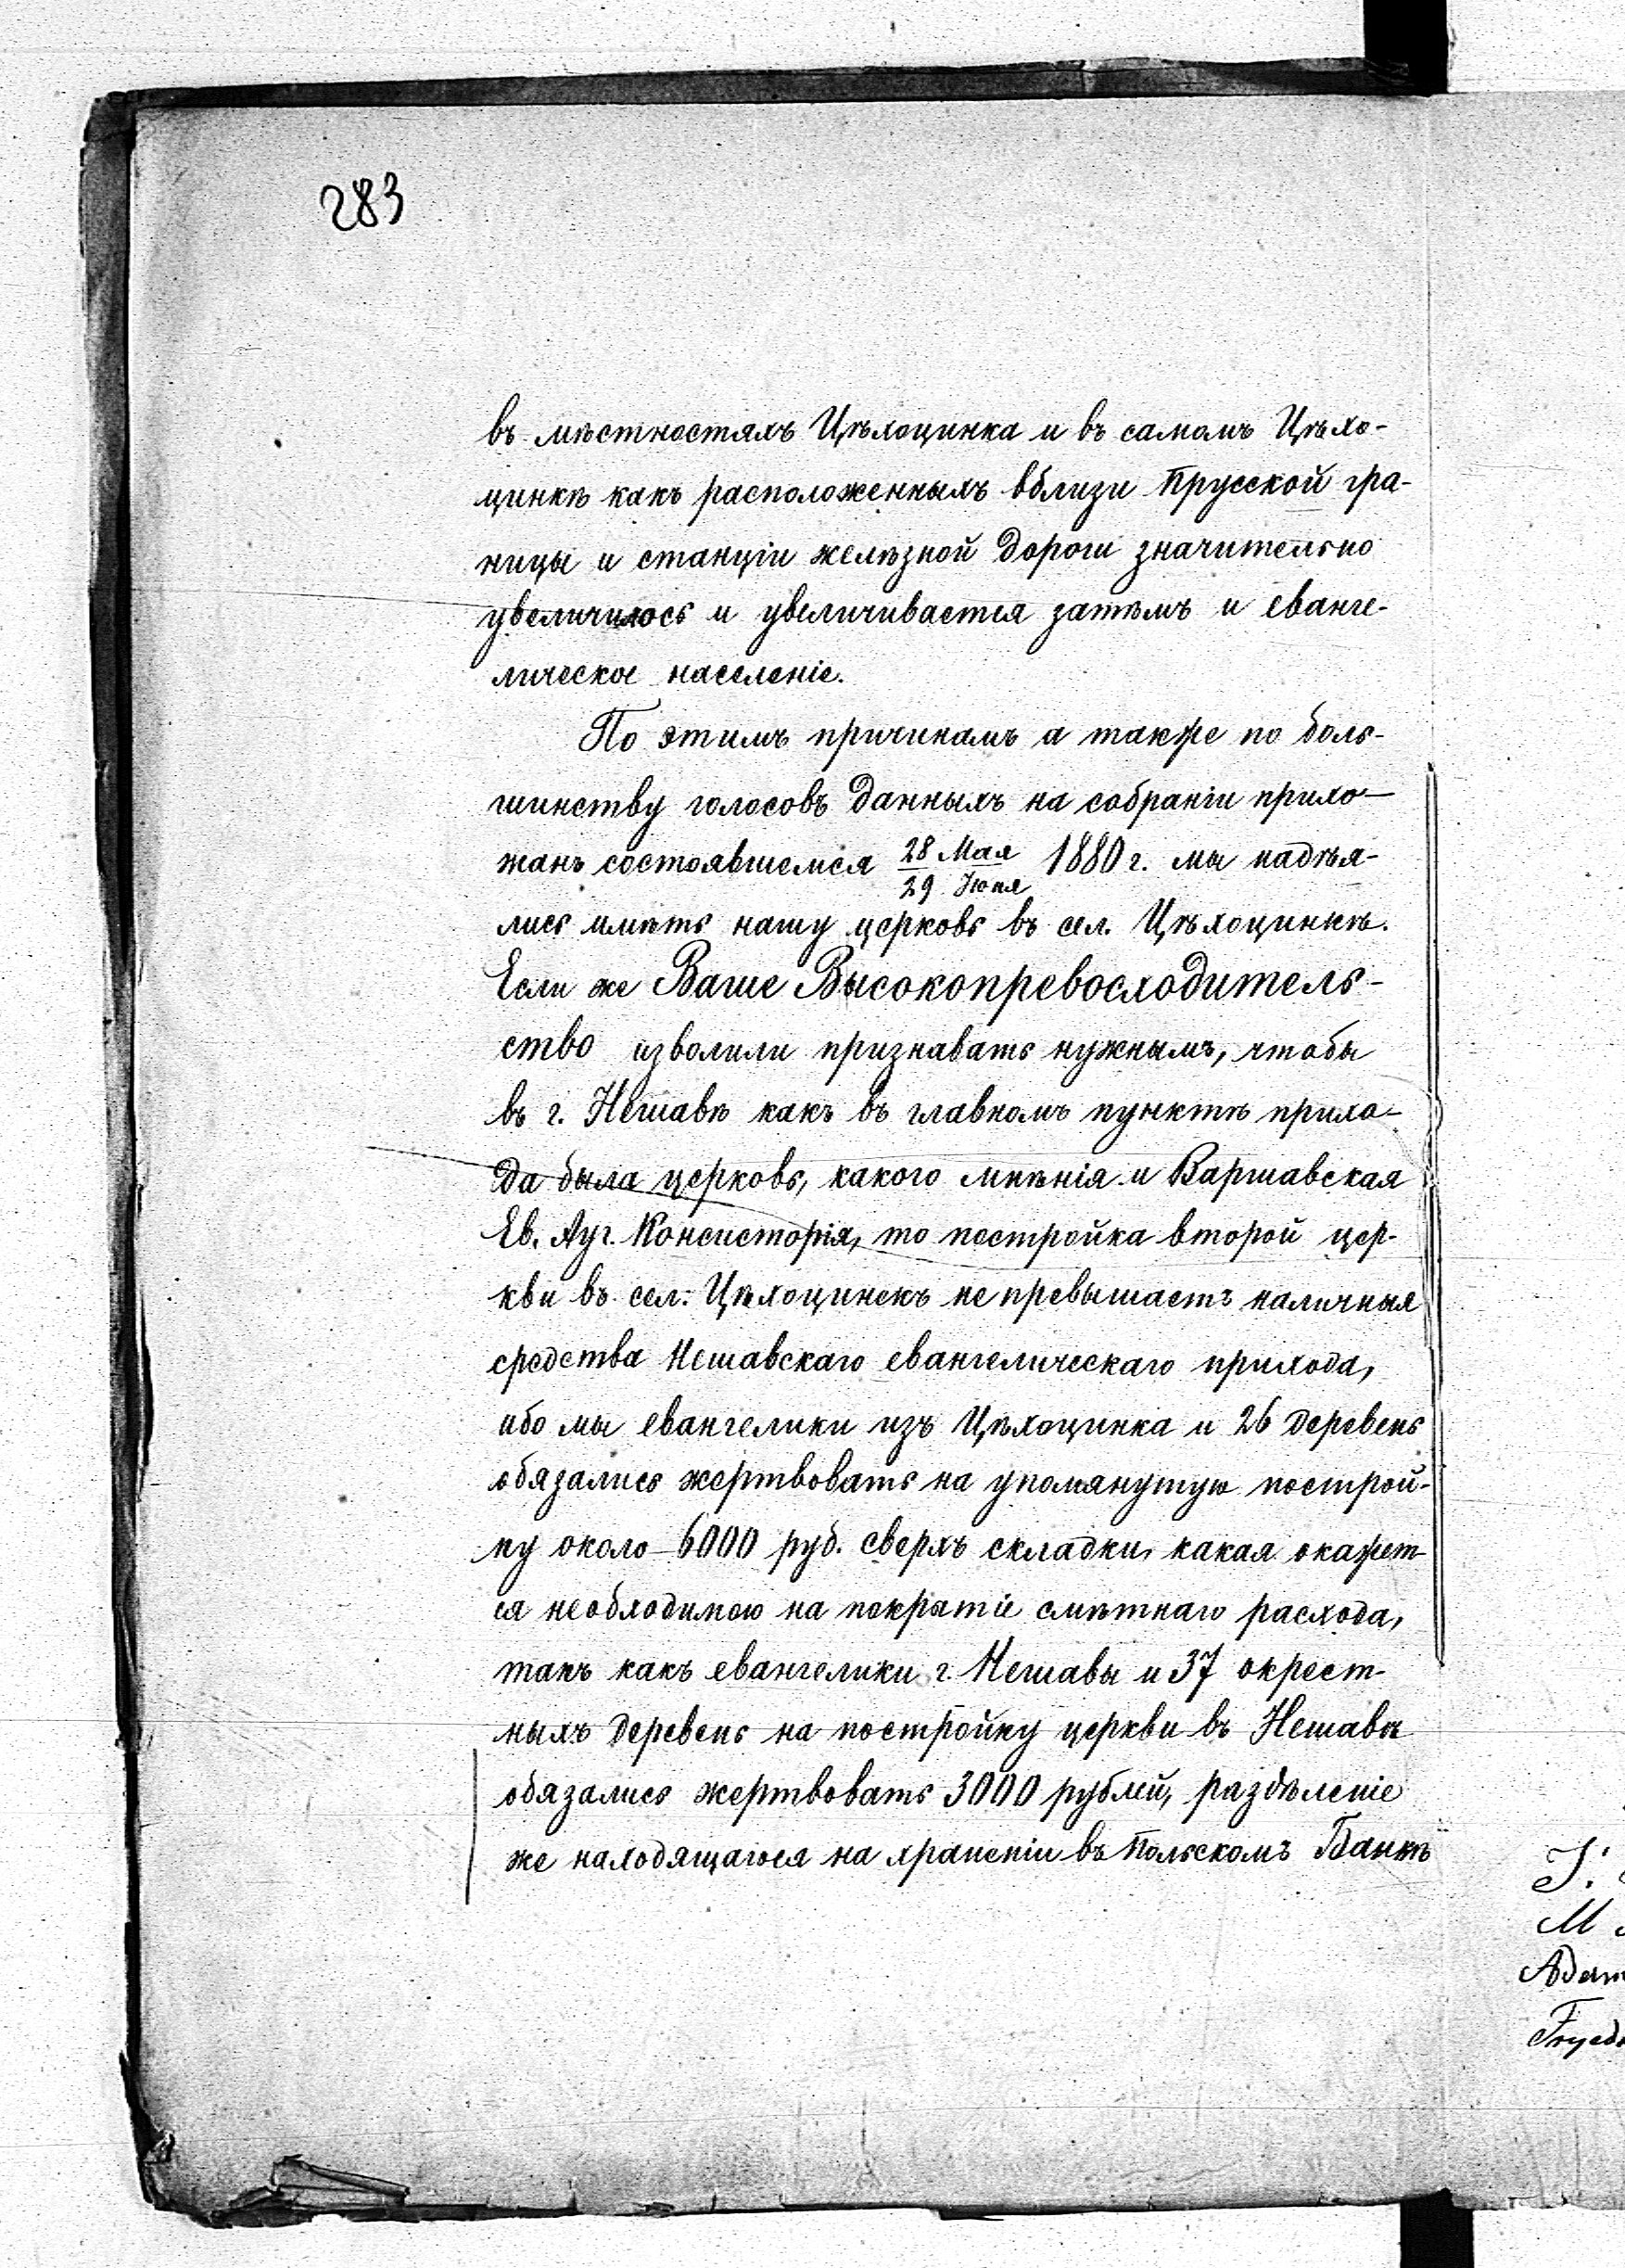 283
въ мѣстностяхъ Цѣхоцинка и въ самомъ Цѣхо-
цинкѣ какъ расположенныхъ вблизи Прусской гра-
ницы и станціи желѣзной дороги значительно
увеличилось и увеличивается затѣмъ и еванге-
лическое населеніе.
По этимъ причинамъ а также по боль-
шинству голосовъ данныхъ на собраніи прихо-
жанъ состоявшемся 28 Мая / 29 Іюня 1880 г. мы надѣя-
лись имѣть нашу церковь въ сел. Цѣхоцинкѣ.
Если же Ваше Высокопревосходитель-
ство изволили признавать нужнымъ, чтобы
въ г. Нешавѣ какъ въ главномъ пунктѣ прихо-
да была церковь, какого мнѣнія и Варшавская
Ев. Ауг. Консисторія, то постройка второй цер-
кви въ сел. Цѣхоцинекъ не превышаетъ наличныя
средства Нешавскаго евангелическаго прихода,
ибо мы евангелики изъ Цѣхоцинка и 26 деревень
обязались жертвовать на упомянутую построй-
ку около 6000 руб. сверхъ складки, какая окажет-
ся необходимою на покрытіе смѣтнаго расхода,
такъ какъ евангелики г. Нешавы и 37 окрест-
ныхъ деревень на постройку церкви въ Нешавѣ
обязались жертвовать 3000 рублей, раздѣленіе
же находящагося на храненіи въ Польскомъ Банкѣ
J.
M
Adam
Fryed